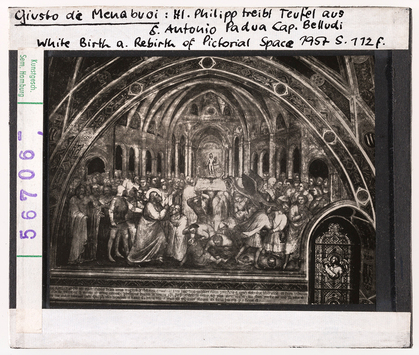 Giusto de Menabuoi : Hl. Philipp treibt Teufel aus
S. Antonio Padua Cap. Belludi
White Birth a. Rebirth of Pictorial Space 1957 S. 112 f.
Kunstgesch.
Sem. Hamburg
56706